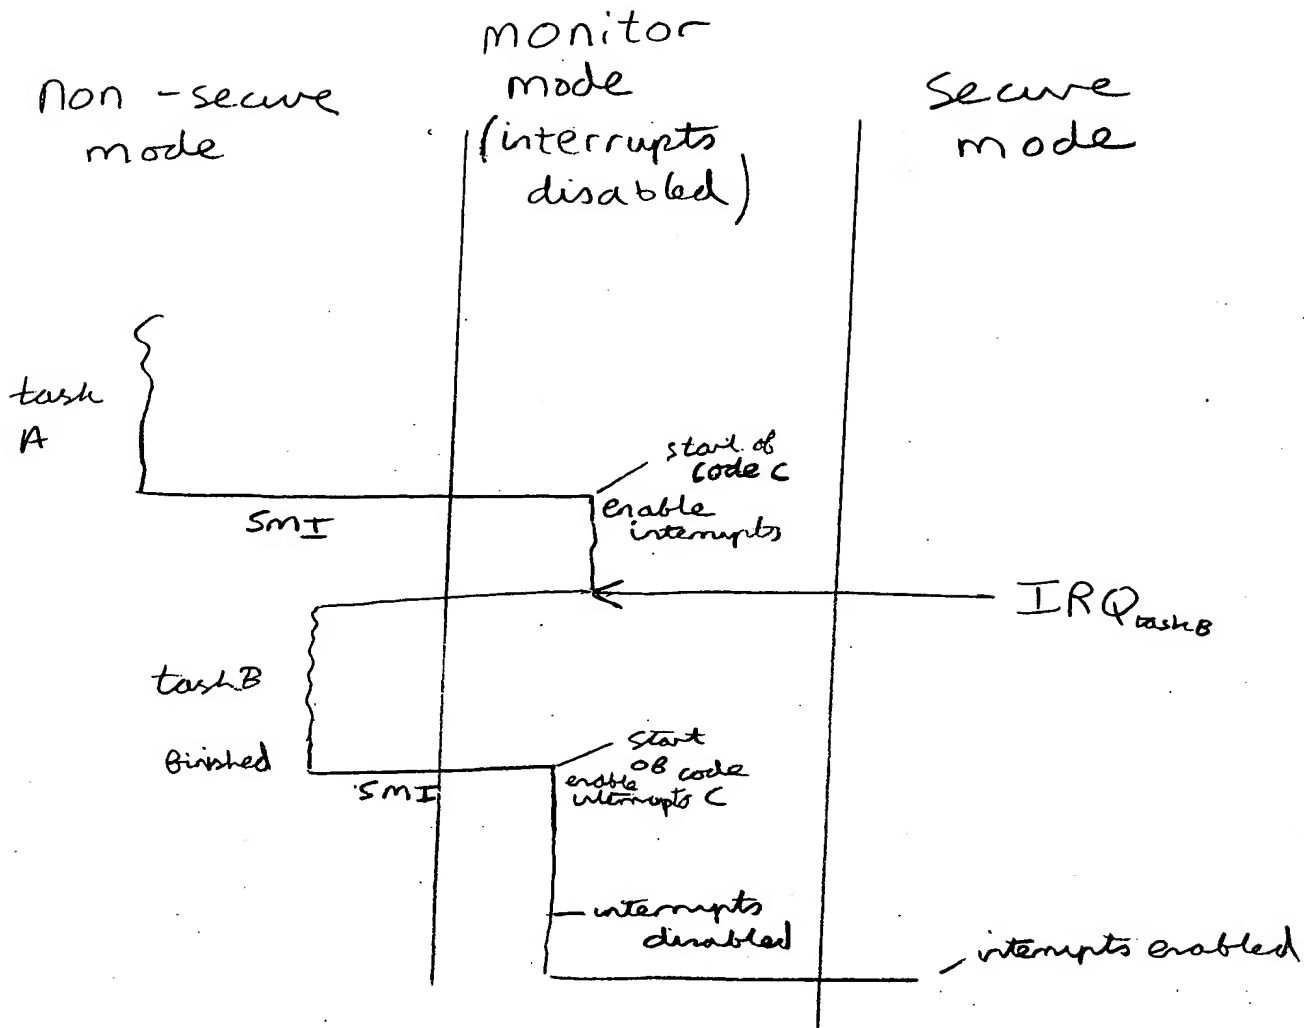 non-secure
mode
monitor
mode
(interrupts
disabled)
secure
mode
task
A
start of
code C
SMI
enable
interrupts
IRQ task B
task B
finished
SMI
start
of code
enable
interrupts C
interrupts
disabled
interrupts enabled